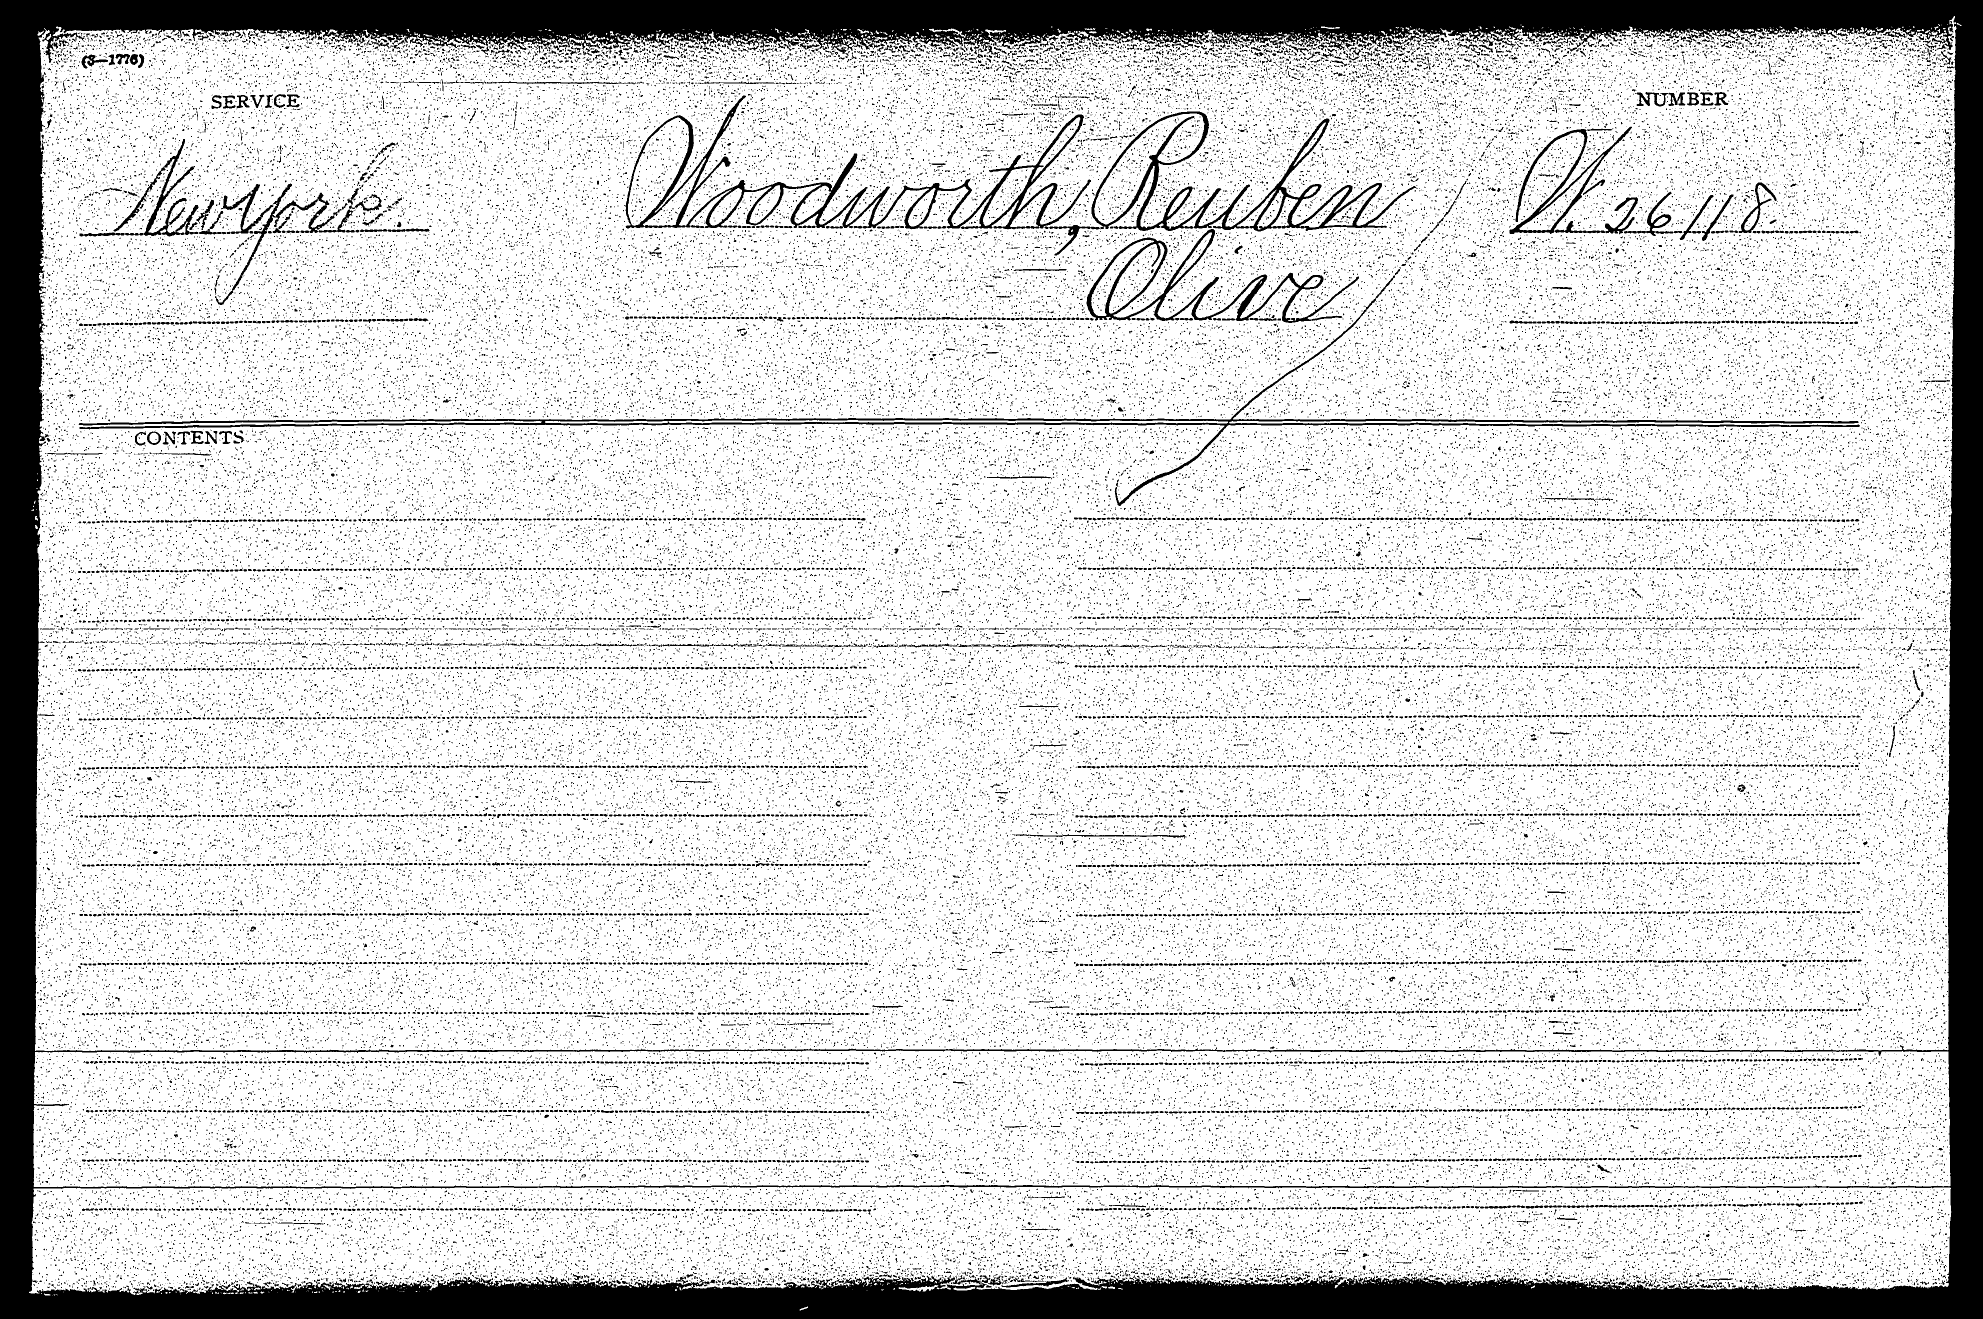 (3—1776)
SERVICE
NUMBER
New York.
Woodworth, Reuben
W. 26118.
Olive
CONTENTS